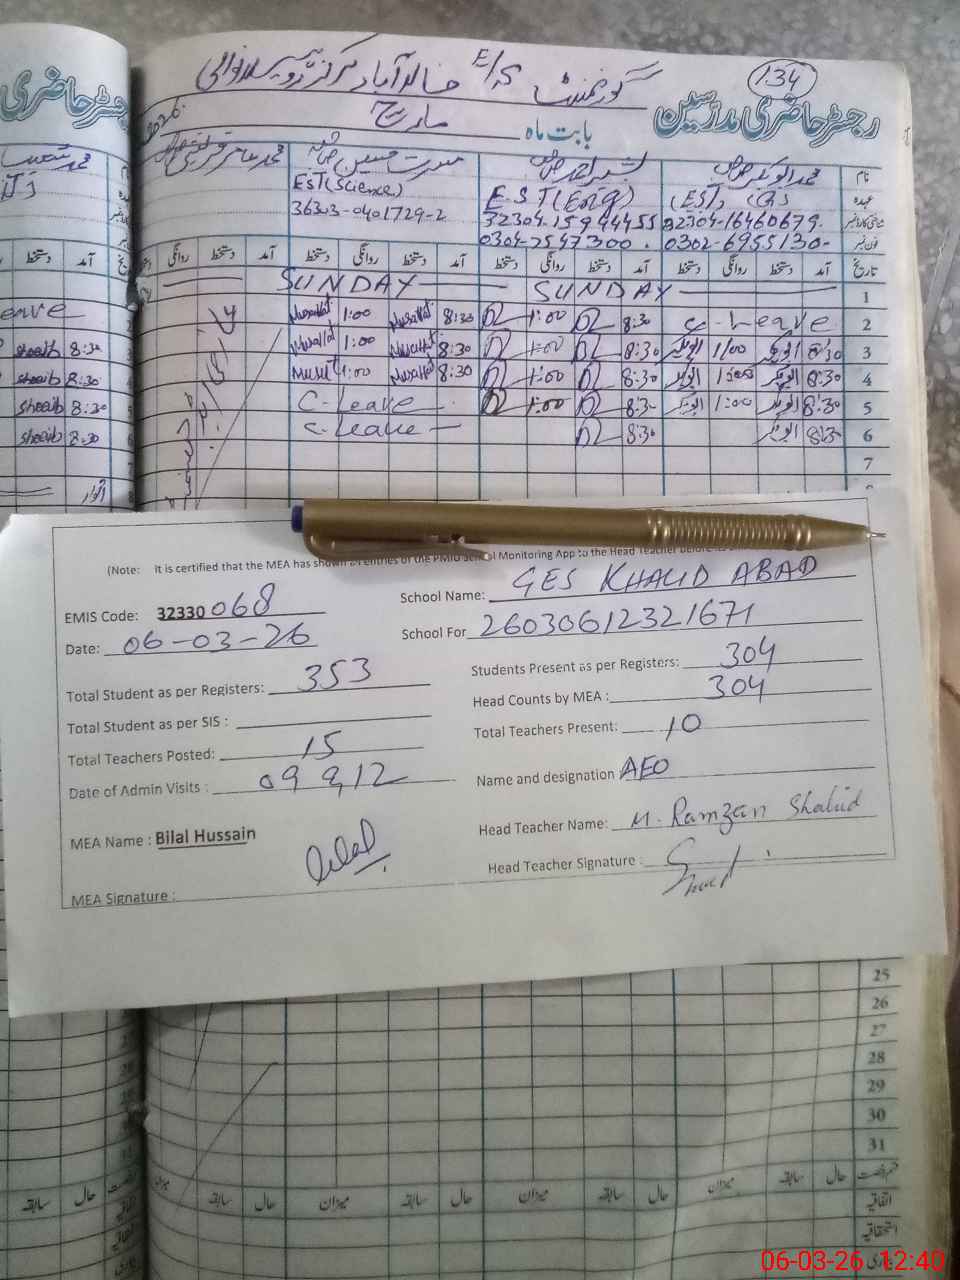 134
گورنمنٹ E/S خالد آباد مرکز
رجسٹر حاضری مدرسین
بابت ماہ مارچ
رجسٹر حاضری
نام محمد ابوبکر بشیر احمد مسرت حسین محمد
عہدہ (EST) E.S.T (Eng) EST (Science)
32304-16460679 32304-15944455 36303-0401729-2
فون نمبر 0302-6955130 0304-7547300
تاریخ آمد دستخط روانگی دستخط آمد دستخط روانگی دستخط آمد دستخط روانگی دستخط آمد دستخط روانگی
1 SUNDAY SUNDAY
2 C-Leave 8:30 1:00 8:30 Musallat 1:00 Musallat
3 8:30 ابوبکر 1/00 ابوبکر 8:30 1:00 8:30 Musallat 1:00 Musallat
4 8:30 ابوبکر 1:00 ابوبکر 8:30 1:00 8:30 Musallat 1:00
5 8:30 ابوبکر 1:00 ابوبکر 8:30 1:00 C-Leave
6 8:30 ابوبکر 8:30 C-Leave
7
shoaib 8:30
shoaib 8:30
shoaib 8:30
shoaib 8:30
اتوار
(Note: It is certified that the MEA has shown entries of the PMIU School Monitoring App to the Head Teacher before
EMIS Code: 32330068 School Name: GES KHALID ABAD
Date: 06-03-26 School For 26030612321671
Total Student as per Registers: 353 Students Present as per Registers: 304
Total Student as per SIS : Head Counts by MEA : 304
Total Teachers Posted: 15 Total Teachers Present: 10
Date of Admin Visits : 09 &,12 Name and designation AEO
MEA Name : Bilal Hussain Head Teacher Name: M. Ramzan Shahid
MEA Signature : Bilal Head Teacher Signature :
25
26
27
28
29
30
31
قسم رخصت حال سابقہ میزان حال سابقہ میزان حال سابقہ میزان حال سابقہ میزان
اتفاقیہ
استحقاقیہ
بیماری
06-03-26 12:40